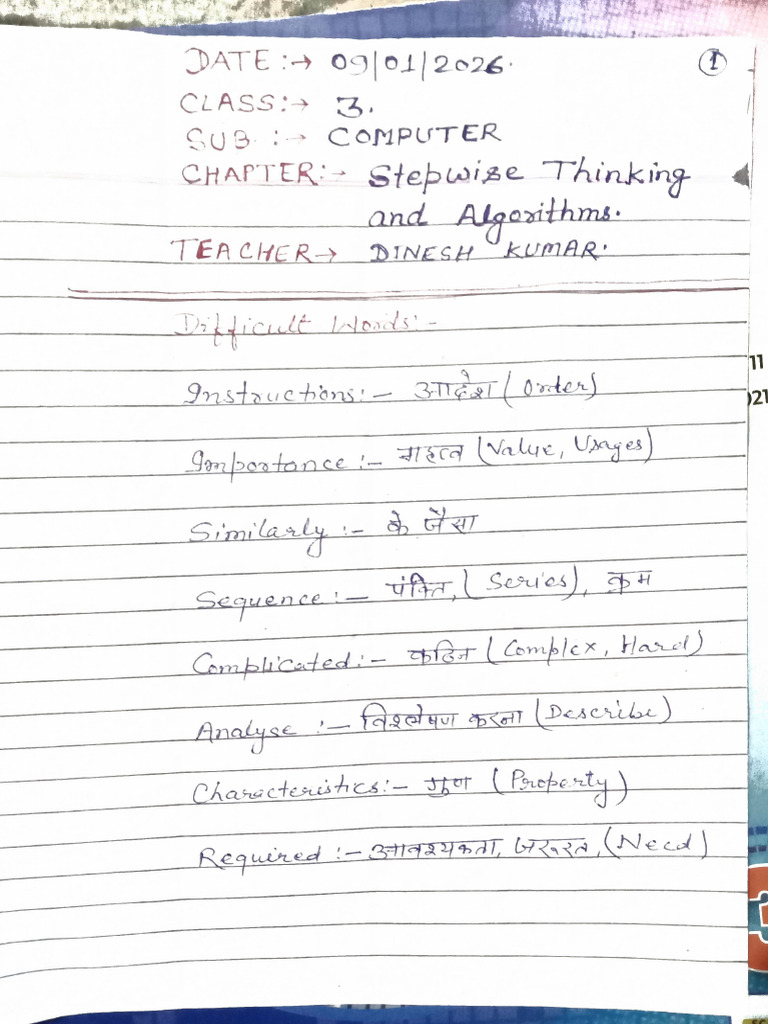 DATE :→ 09/01/2026.
①
CLASS:→ 3.
SUB :→ COMPUTER
CHAPTER:→ Stepwise Thinking
and Algorithms.
TEACHER→ DINESH KUMAR.
Difficult Words:-
Instructions:- आदेश (Order)
Importance :- महत्व (Value, Usages)
Similarly :- के जैसा
Sequence :- पंक्ति, (Series), क्रम
Complicated :- कठिन (Complex, Hard)
Analyse :- विश्लेषण करना (Describe)
Characteristics:- गुण (Property)
Required :- आवश्यकता, जरूरत, (Need)
11
021